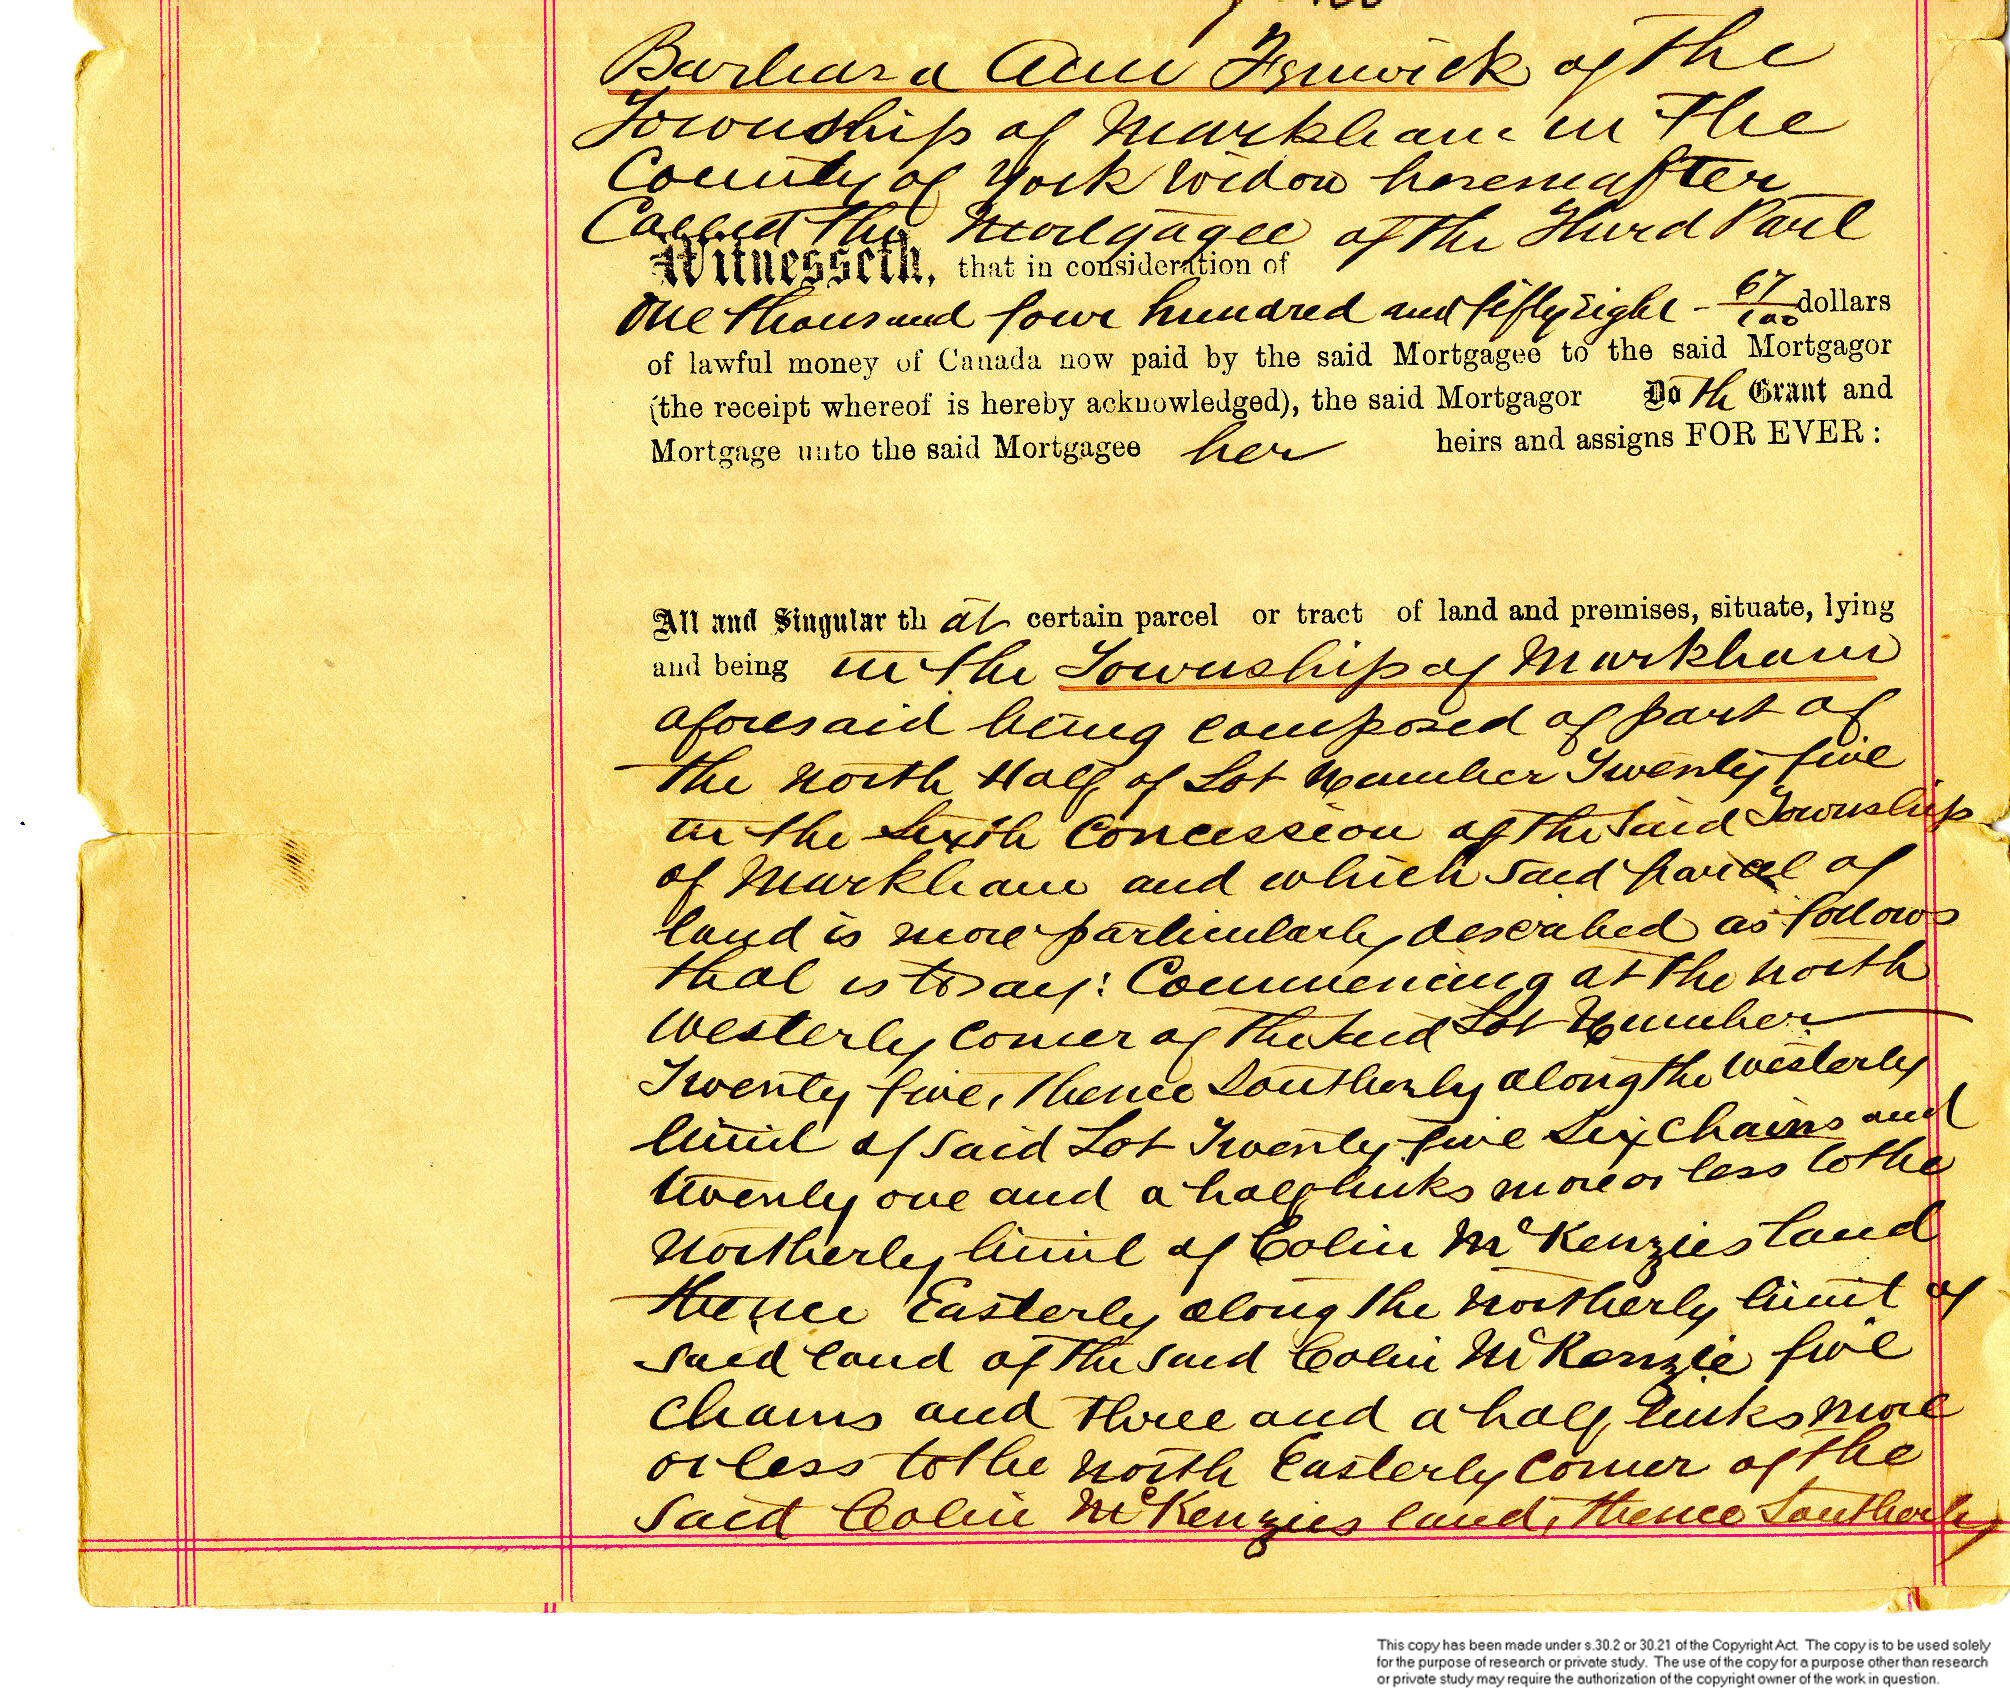 Barbara Ann Fenwick of the
Township of Markham in the
County of York Widow hereinafter
Called the Mortgagee of the Third Part
Witnesseth, that in consideration of
One thousand four hundred and fifty eight - 67/100 dollars
of lawful money of Canada now paid by the said Mortgagee to the said Mortgagor
(the receipt whereof is hereby acknowledged), the said Mortgagor Doth Grant and
Mortgage unto the said Mortgagee her heirs and assigns FOR EVER:
All and Singular that certain parcel or tract of land and premises, situate, lying
and being in the Township of Markham
aforesaid being composed of part of
the North Half of Lot Number Twenty five
in the Sixth Concession of the said Township
of Markham and which said parcel of
land is more particularly described as follows
that is to say: Commencing at the North
Westerly corner of the said Lot Number
Twenty five, thence Southerly along the Westerly
limit of said Lot Twenty five Six Chains and
twenty one and a half links more or less to the
Northerly limit of Colin McKenzies land
thence Easterly along the Northerly limit of
said land of the said Colin McKenzie five
Chains and three and a half links more
or less to the North Easterly Corner of the
said Colin McKenzies land, thence Southerly
This copy has been made under s.30.2 or 30.21 of the Copyright Act. The copy is to be used solely
for the purpose of research or private study. The use of the copy for a purpose other than research
or private study may require the authorization of the copyright owner of the work in question.